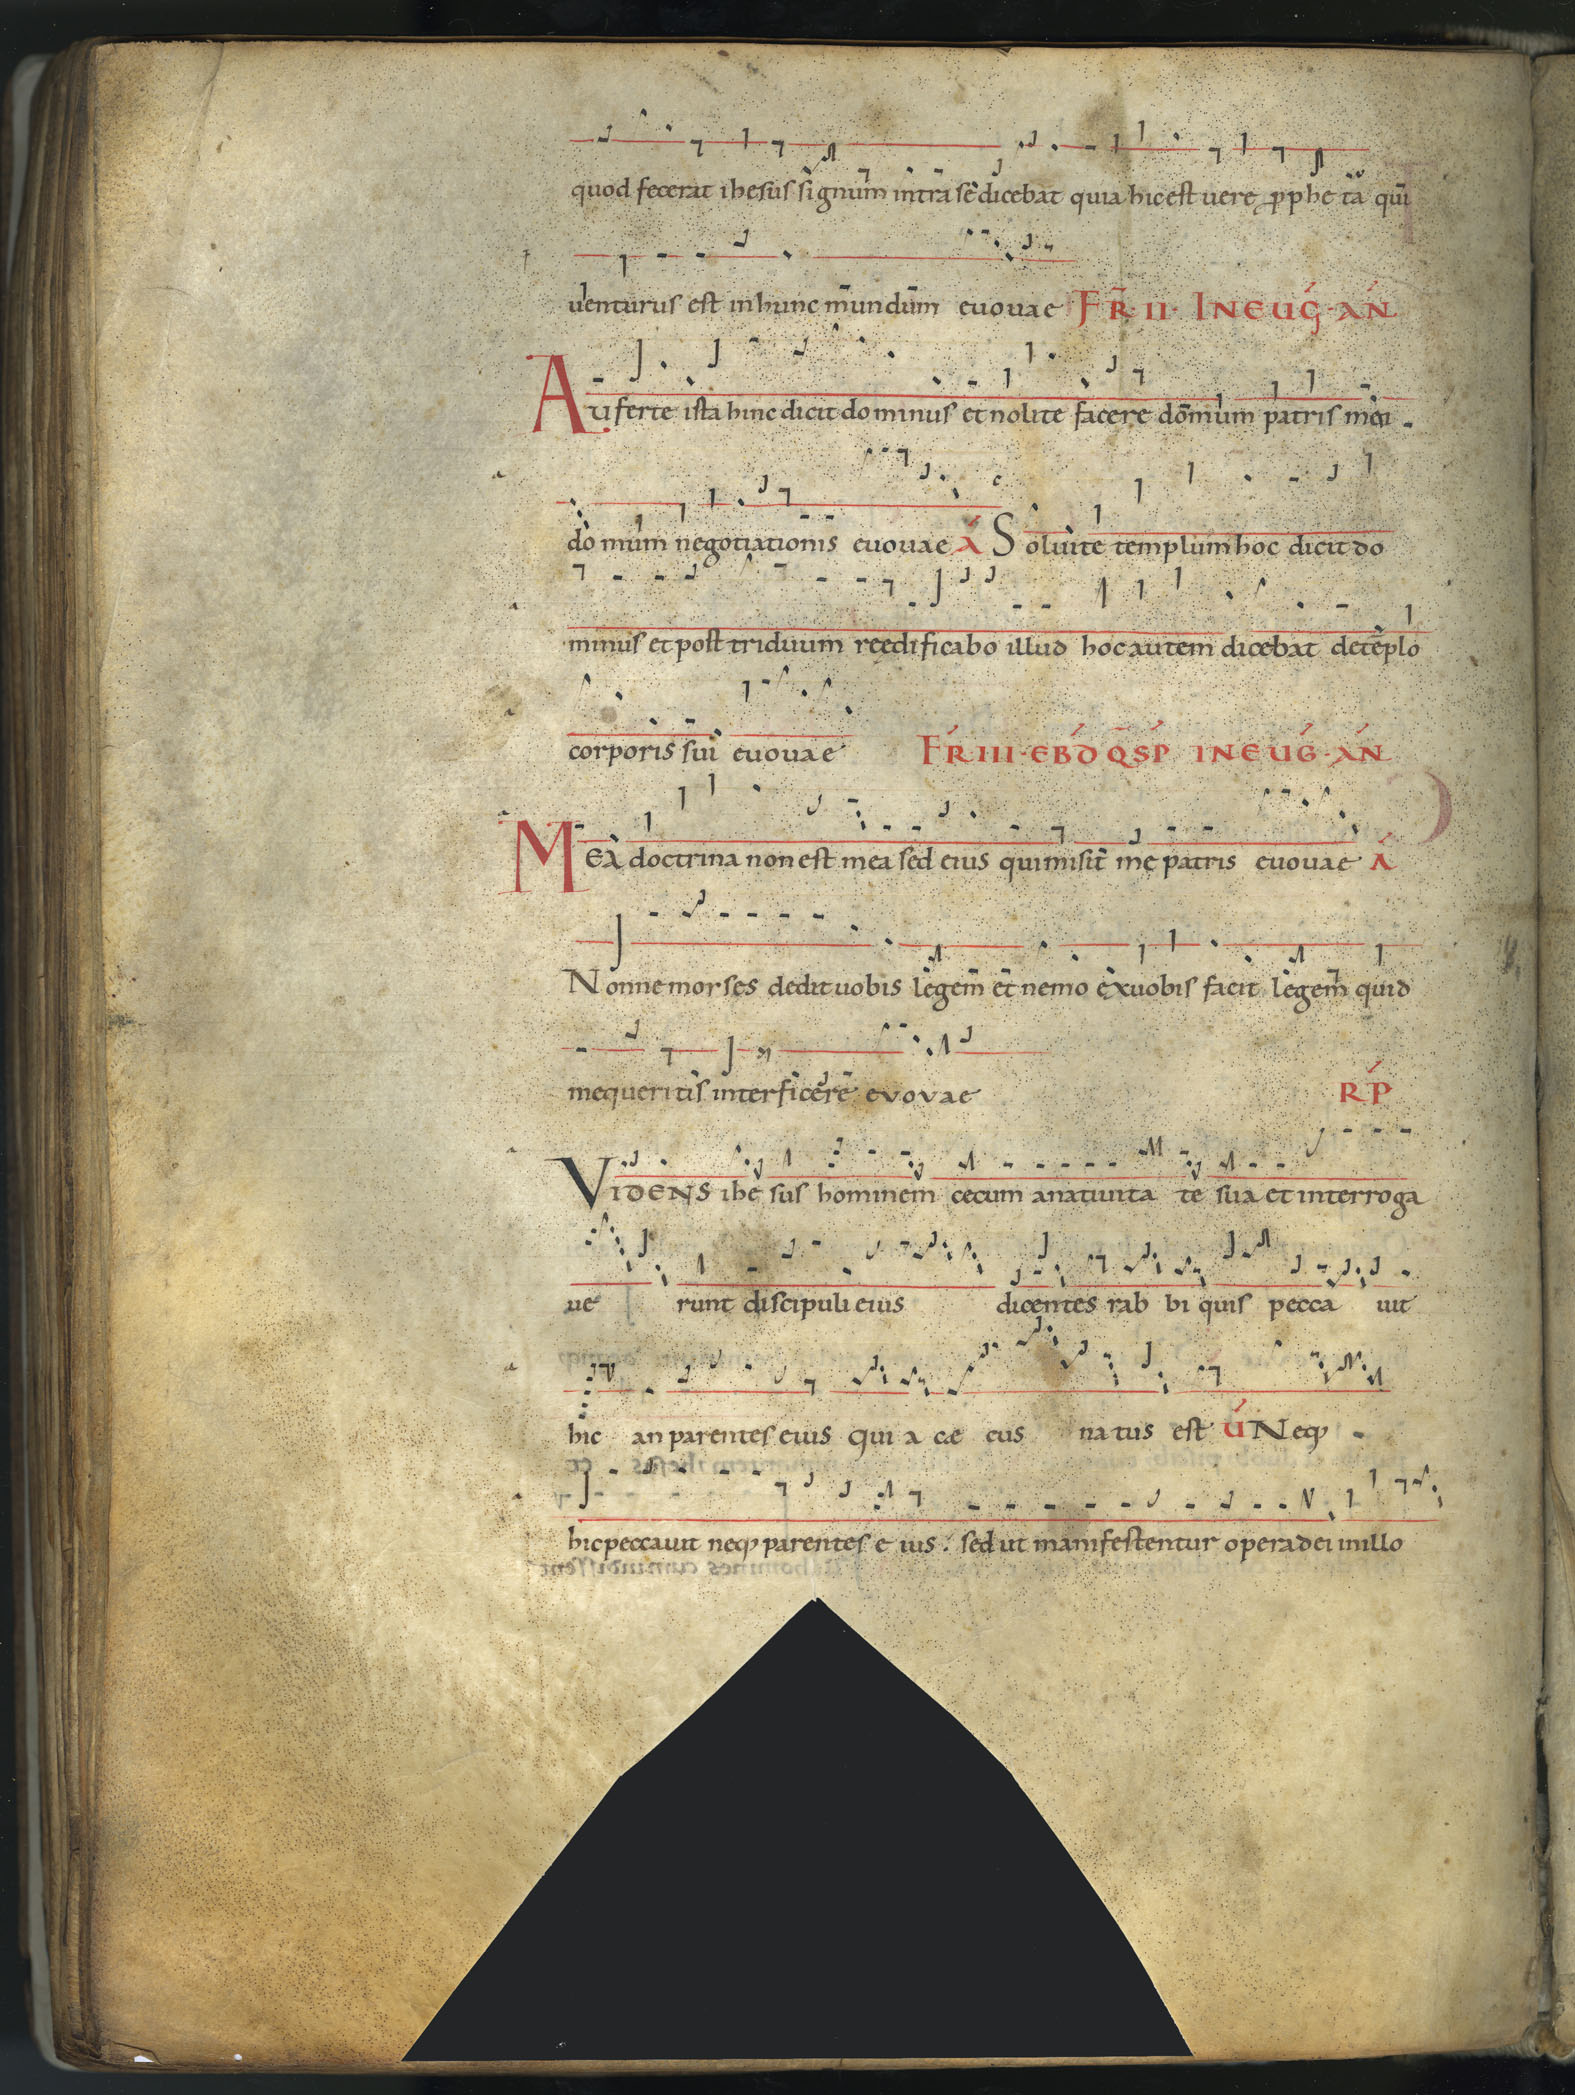 quod fecerat ihesus signum intra se dicebat quia hic est uere ꝓphe ta qui
uenturus est in hunc mundum euouae FR̄ II IN EUḠ AN̄
Auferte ista hinc dicit dominus et nolite facere domum patris mei
domum negotiationis euouae A Soluite templum hoc dicit do
minus et post triduum reedificabo illud hoc autem dicebat de tēplo
corporis sui euouae FR̄ III EBD̄ QSP̄ IN EUḠ AN̄
MEA doctrina non est mea sed eius qui misit me patris euouae A
Nonne morses dedit uobis legem et nemo ex uobis facit legem quid
me queritis interficere evovae RP̄
VIDENS ihe sus hominem cecum a natiuita te sua et interroga
ue runt discipuli eius dicentes rab bi quis pecca uit
hic an parentes eius qui a cæ cus natus est ú Neqꝫ
hic peccauit neqꝫ parentes e ius : sed ut manifestentur opera dei in illo